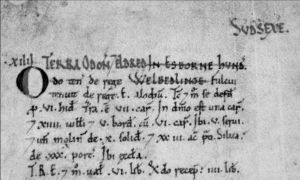 SUDSEXE.
.xliii. TERRA ODON ET ELDRED IN ESBORNE HUND.
Odo ten de rege WELBEDLINGE. Fulcui
tenuit de rege. E. alodiū. Tc 7 m̃ se defđ
p. vi. hiđ. Trã. ē. vii. car̃. In dñio est una car̃.
7 xiiii. uilƚi 7 v. borđ. cū. vi. car̃. Ibi. v. serui.
un molin de. x. soliđ. 7 xxiii. ac p̃ti. Silua.
de. xxx. porc. Ibi æccƚa.
T.R.E. 7 m̃. uaƚ. vi. liƀ. Xdo recep. iiii. liƀ.